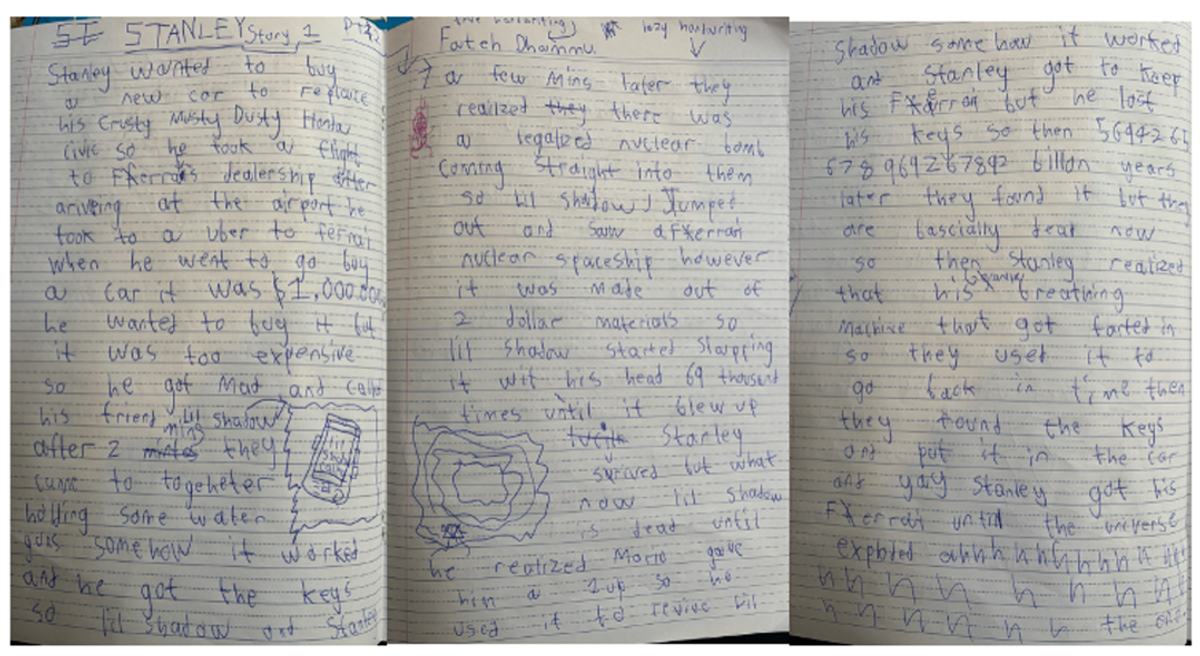 STANLEY Story 1
Stanley wanted to buy
a new car to replace
his Crusty Musty Dusty Honda
civic so he took a flight
to Fxerrai's dealership after
ariveing at the airport he
took to a uber to ferrai
when he went to go buy
a car it was $1,000.000
he wanted to buy it but
it was too expensive
so he got Mad and called
his friend Lil shadow
after 2 mins they
came to togeheter
holding some water
guns somehow it worked
and he got the keys
so lil shadow and Stanley
lil
shadow
true handwriting lazy handwriting
Fateh Dhammu
a few mins later they
realized they there was
a legalized nuclear bomb
Coming straight into them
so Lil shadow Jumped
out and saw a Fxerrari
nuclear spaceship however
it was made out of
2 dollar materials so
lil shadow started Slapping
it wit his head 69 thousand
times until it blew up
Stanley
survived but what
now lil shadow
is dead until
he realized Mario gave
him a 1up so he
used it to revive lil
Shadow some how it worked
and Stanley got to keep
his Fxerrari but he lost
his keys so then 5694265
678969267892 billon years
later they found it but they
are bascially dead now
so then Stanley realized
that his strange breathing
Machine that got farted in
so they used it to
go back in time then
they found the keys
and put it in the car
and yay Stanley got his
Fxerrari until the universe
exploded ahhhhhhhhhhhh
hhhhhhhh
hhhhhh the end